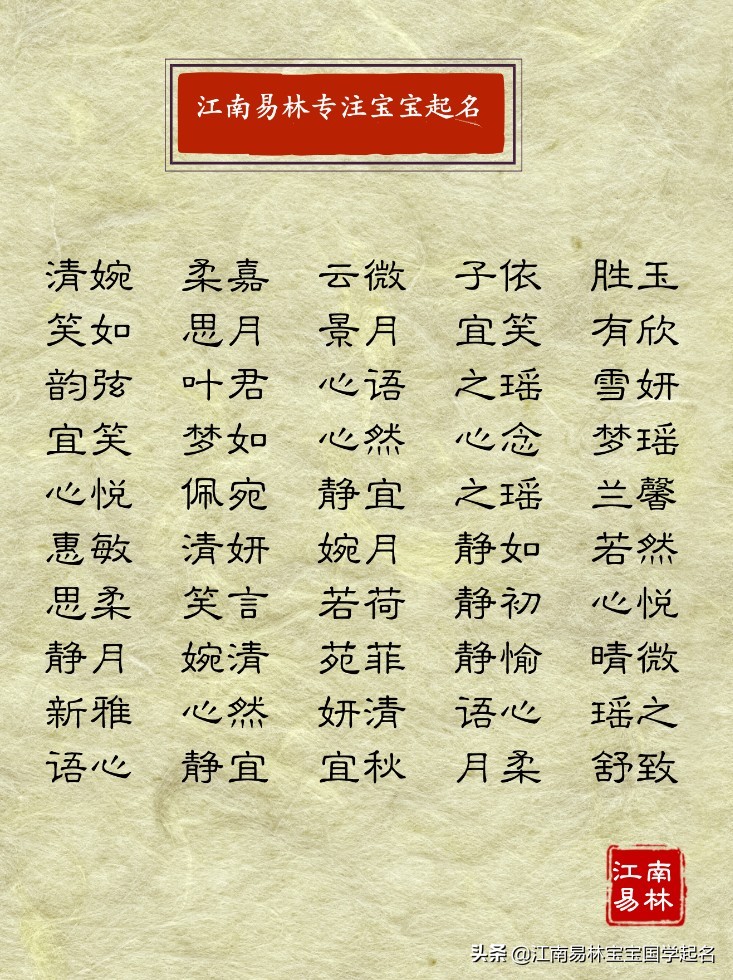 江南易林专注宝宝起名
清婉 柔嘉 云微 子依 胜玉
笑如 思月 景月 宜笑 有欣
韵弦 叶君 心语 之瑶 雪妍
宜笑 梦如 心然 心念 梦瑶
心悦 佩宛 静宜 之瑶 兰馨
惠敏 清妍 婉月 静如 若然
思柔 笑言 若荷 静初 心悦
静月 婉清 苑菲 静愉 晴微
新雅 心然 妍清 语心 瑶之
语心 静宜 宜秋 月柔 舒致
江南
易林
头条 @江南易林宝宝国学起名